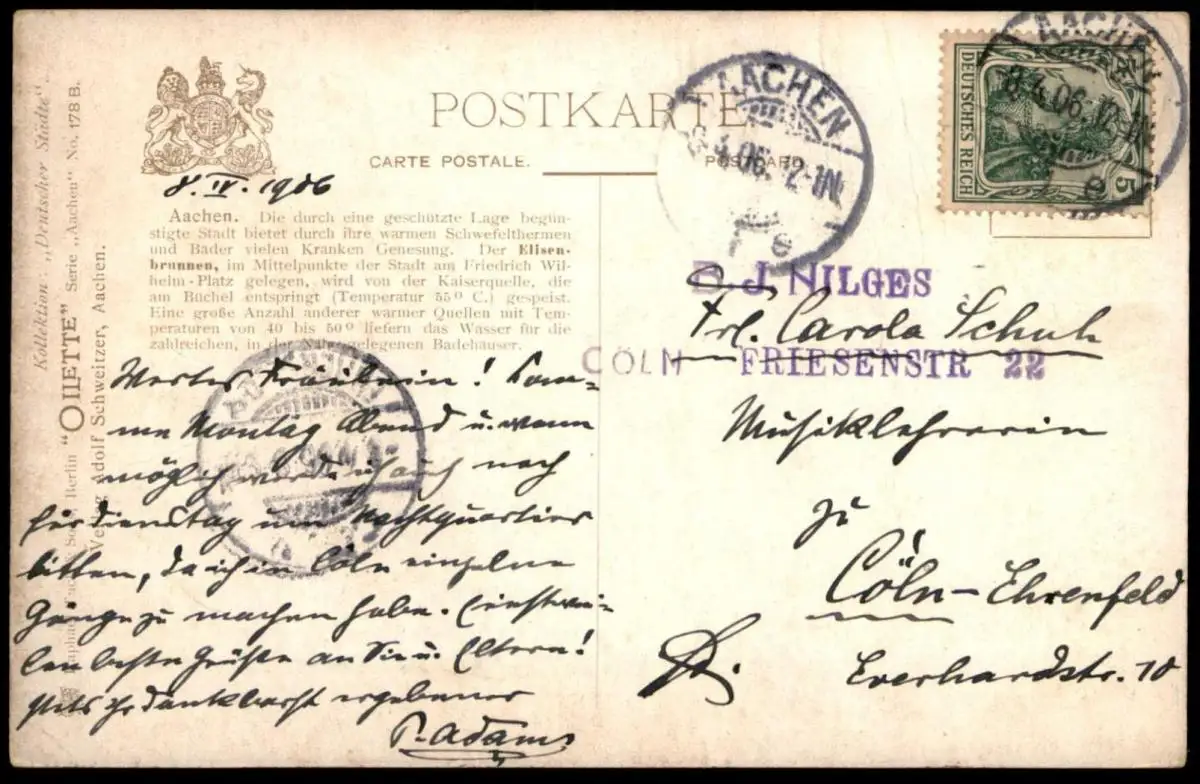 POSTKARTE
CARTE POSTALE.
POSTCARD
AACHEN
8.4.06. 12-1N.
e
AACHEN
8.4.06. 12-1N.
e
DEUTSCHES REICH
5
8. IV. 1906
Aachen. Die durch eine geschützte Lage begün-
stigte Stadt bietet durch ihre warmen Schwefelthermen
und Bäder vielen Kranken Genesung. Der Elisen-
brunnen, im Mittelpunkte der Stadt am Friedrich Wil-
helm-Platz gelegen, wird von der Kaiserquelle, die
am Büchel entspringt (Temperatur 55° C.) gespeist.
Eine große Anzahl anderer warmer Quellen mit Tem-
peraturen von 40 bis 50° liefern das Wasser für die
zahlreichen, in der Nähe gelegenen Badehäuser.
Kollektion: „Deutscher Städte“
"OILETTE" Serie „Aachen“ No. 178 B.
Berlin
Verlag Adolf Schweitzer, Aachen.
Wertes Fräulein! Kom-
me Montag Abend u. wenn
möglich werde ich auch noch
für Dienstag um Nachtquartier
bitten, da ich in Cöln einzelne
Gänge zu machen habe. Einstwei-
len beste Grüße an Sie u. Eltern!
Stets Ihr dankbarst ergebener
P. Adams
J. NILGES
CÖLN FRIESENSTR 22
Frl. Carola Schuh
Musiklehrerin
zu
Cöln-Ehrenfeld
Everhardstr. 10